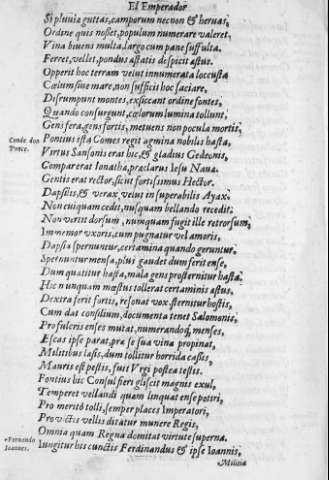 El Emperador
Si pluuiæ guttas, camporum necnon & heruas,
Ordine quis nosset, populum numerare valeret,
Vina biuens multa, largo cum pane suffulta.
Ferret, vellet, pondus astatis despicit astus.
Opperit hoc terram velut innumerata loccusta
Cœlum siue mare, non sufficit hoc saciare,
Disrumpunt montes, exsiccant ordine fontes,
Quando consurgunt, cœlorum lumina tollunt.
Gens fera, gens fortis, metuens non pocula mortis,
Conde don Ponce.
Pontius ista Comes regit agmina nobilis hasta,
Virtus Sansonis erat hic, & gladius Gedeonis,
Compar erat Ionatha, præclarus Iesu Naua.
Gentis erat rector, sicut fortissimus Hector.
Dapsilis, & verax, velut insuperabilis Ayax.
Non cuiquam cedit, nusquam bellando recedit.
Non vertit dorsum, numquam fugit ille retrorsum,
Immemor vxoris, cum pugnatur vel amoris,
Dapsia spernuntur, certamina quando geruntur.
Spernuntur mensa, plus gaudet dum ferit ense,
Dum quatitur hasta, mala gens prosternitur hasta.
Hic nunquam mæstus tollerat certaminis astus.
Dextra ferit fortis, resonat vox, sternitur hostis,
Cum dat consilium, documenta tenet Salomonis,
Pro fulcris enses mutat, numerandoq; menses,
Escas ipse parat, pra se sua vina propinat,
Militibus lassis, dum tollitur horrida cassis,
Mauris est pestis, fuit Vrgi postea testis.
Pontius hic Consul fieri gliscit magnis exul,
Temperet vellandi quam linquat ense potiri,
Pro meritò tolli, semper places Imperatori,
Pro victis vellis ditatur munere Regis,
Omnia quam Regna domitat virtute superna.
*Fernando Ioannes.
Iungitur his cunctis Ferdinandus & ipse Ioannis,
Militia